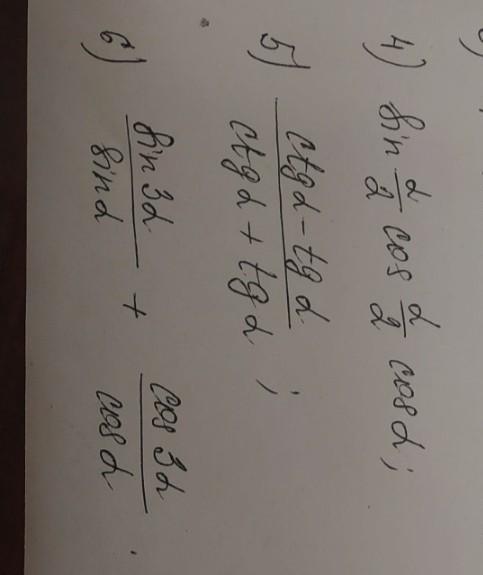 4) sin α/2 cos α/2 cos α;
5) (ctg α - tg α)/(ctg α + tg α);
6) sin 3α/sin α + cos 3α/cos α.